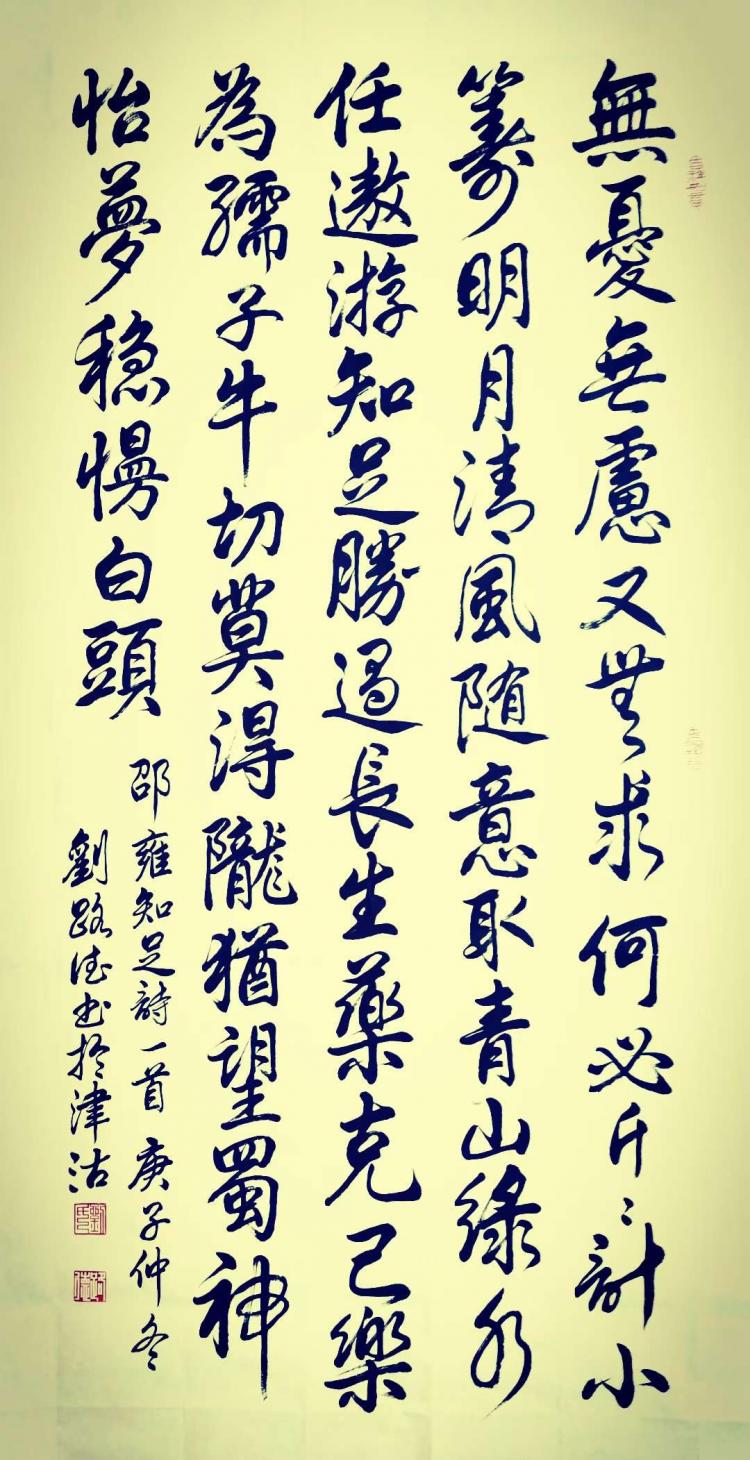 無憂無慮又無求何必斤〻計小
籌明月清風随意取青山綠水
任遨游知足勝過長生藥克己樂
為孺子牛切莫得隴猶望蜀神
怡夢穩慢白頭
邵雍知足詩一首庚子仲冬
劉路德书於津沽